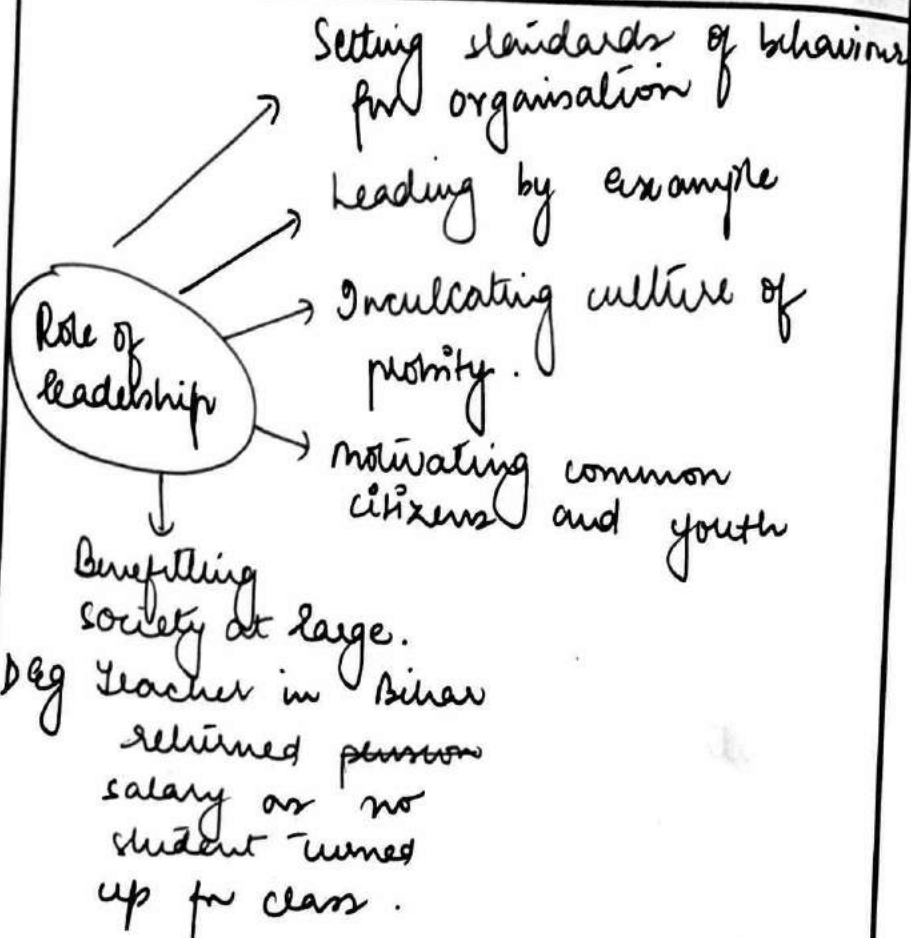 Setting standards of behaviour
for organisation
Leading by example
Role of
leadership
Inculcating culture of
probity.
Motivating common
citizens and youth
Benefitting
society at large.
Eg Teacher in Bihar
returned pension
salary as no
student turned
up for class.